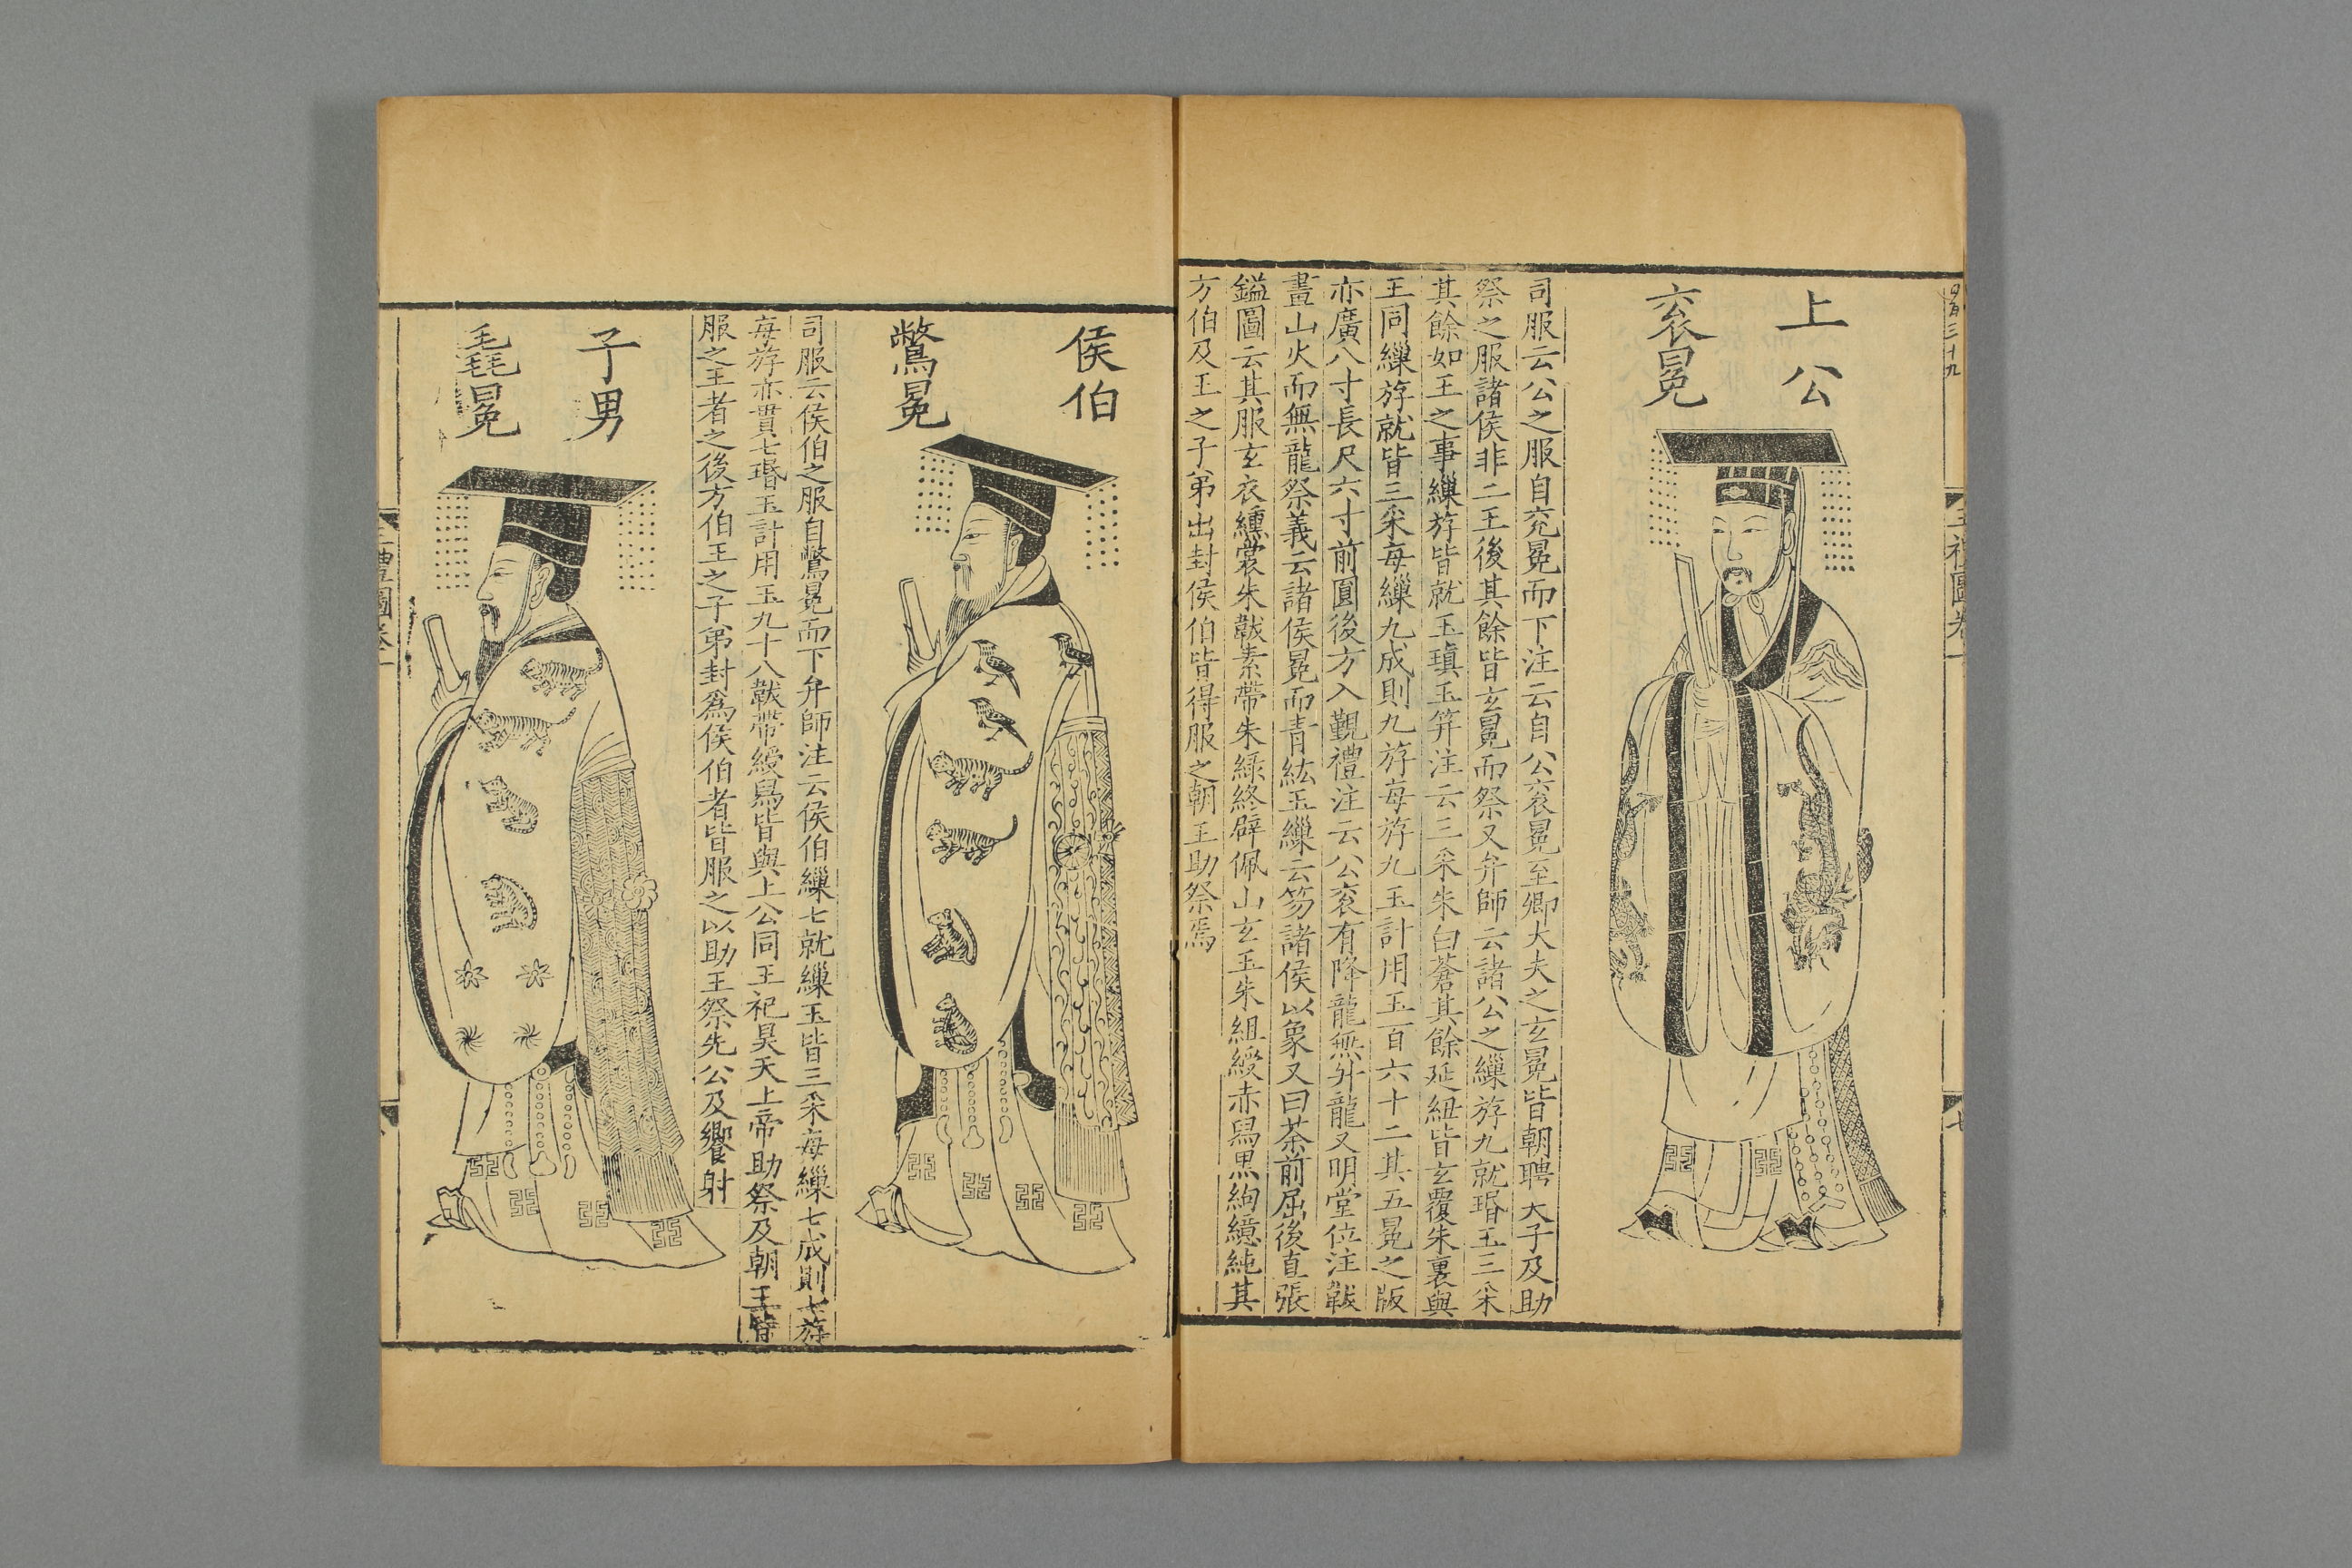 上公
衮冕
司服云公之服自衮冕而下注云自公衮冕至卿大夫之玄冕皆朝聘天子及助
祭之服諸侯非二王後其餘皆玄冕而祭又弁師云諸公之繅斿九就瑉玉三采
其餘如王之事繅斿皆就玉瑱玉笄注云三采朱白蒼其餘延紐皆玄覆朱裏與
王同繅斿就皆三采每繅九成則九斿每斿九玉計用玉百六十二其五冕之版
亦廣八寸長尺六寸前圓後方入覲禮注云公衮有降龍無升龍又明堂位注韍
畫山火而無龍祭義云諸侯冕而青紘玉繅云笏諸侯以象又曰荼前屈後直張
鎰圖云其服玄衣纁裳朱韍素帶朱綠終辟佩山玄玉朱組綬赤舄黑絇繶純其
方伯及王之子弟出封侯伯皆得服之朝王助祭焉
三禮圖卷一
七
侯伯
鷩冕
司服云侯伯之服自鷩冕而下弁師注云侯伯繅七就繅玉皆三采每繅七成則七斿
每斿亦貫七瑉玉計用玉九十八韍帶綬舄皆與上公同王祀昊天上帝助祭及朝王皆
服之王者之後方伯王之子弟封爲侯伯者皆服之以助王祭先公及饗射
子男
毳冕
三禮圖卷一